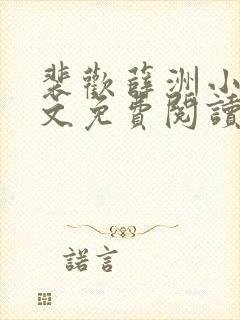 裴歡薛洲小
文免費閱讀
諾言